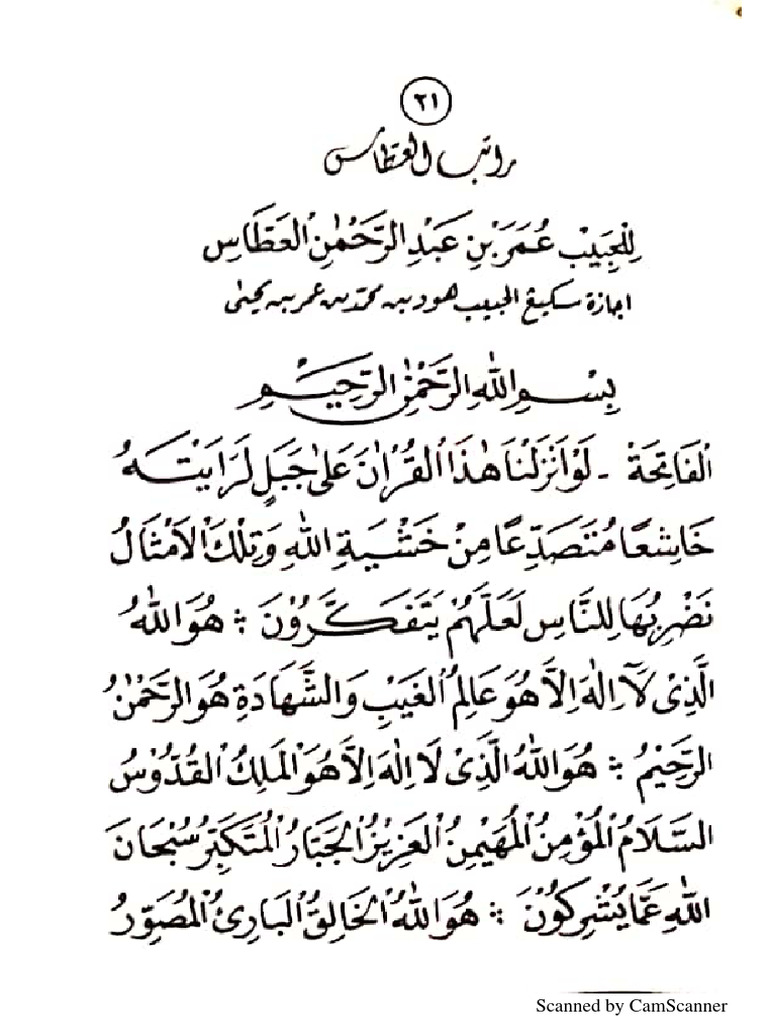 ٢١
راتب العطاس
لِلْحَبِيْبْ عُمَرَ بْنِ عَبْدِ الرَّحْمٰنِ الْعَطَّاسِ
اجازة سكيڠ الحبيب هود بن محمد بن عمر بن يحيى
بِسْمِ اللهِ الرَّحْمٰنِ الرَّحِيْمِ
اَلْفَاتِحَةْ - لَوْ اَنْزَلْنَا هٰذَا الْقُرْاٰنَ عَلٰى جَبَلٍ لَرَاَيْتَهُ
خَاشِعًا مُتَصَدِّعًا مِنْ خَشْيَةِ اللهِ وَتِلْكَ الْاَمْثَالُ
نَضْرِبُهَا لِلنَّاسِ لَعَلَّهُمْ يَتَفَكَّرُوْنَ ؞ هُوَ اللهُ
الَّذِىْ لَآ اِلٰهَ اِلَّا هُوَ عَالِمُ الْغَيْبِ وَالشَّهَادَةِ هُوَ الرَّحْمٰنُ
الرَّحِيْمُ ؞ هُوَ اللهُ الَّذِىْ لَا اِلٰهَ اِلَّا هُوَ الْمَلِكُ الْقُدُّوْسُ
السَّلَامُ الْمُؤْمِنُ الْمُهَيْمِنُ الْعَزِيْزُ الْجَبَّارُ الْمُتَكَبِّرُ سُبْحَانَ
اللهِ عَمَّا يُشْرِكُوْنَ ؞ هُوَ اللهُ الْخَالِقُ الْبَارِئُ الْمُصَوِّرُ
Scanned by CamScanner